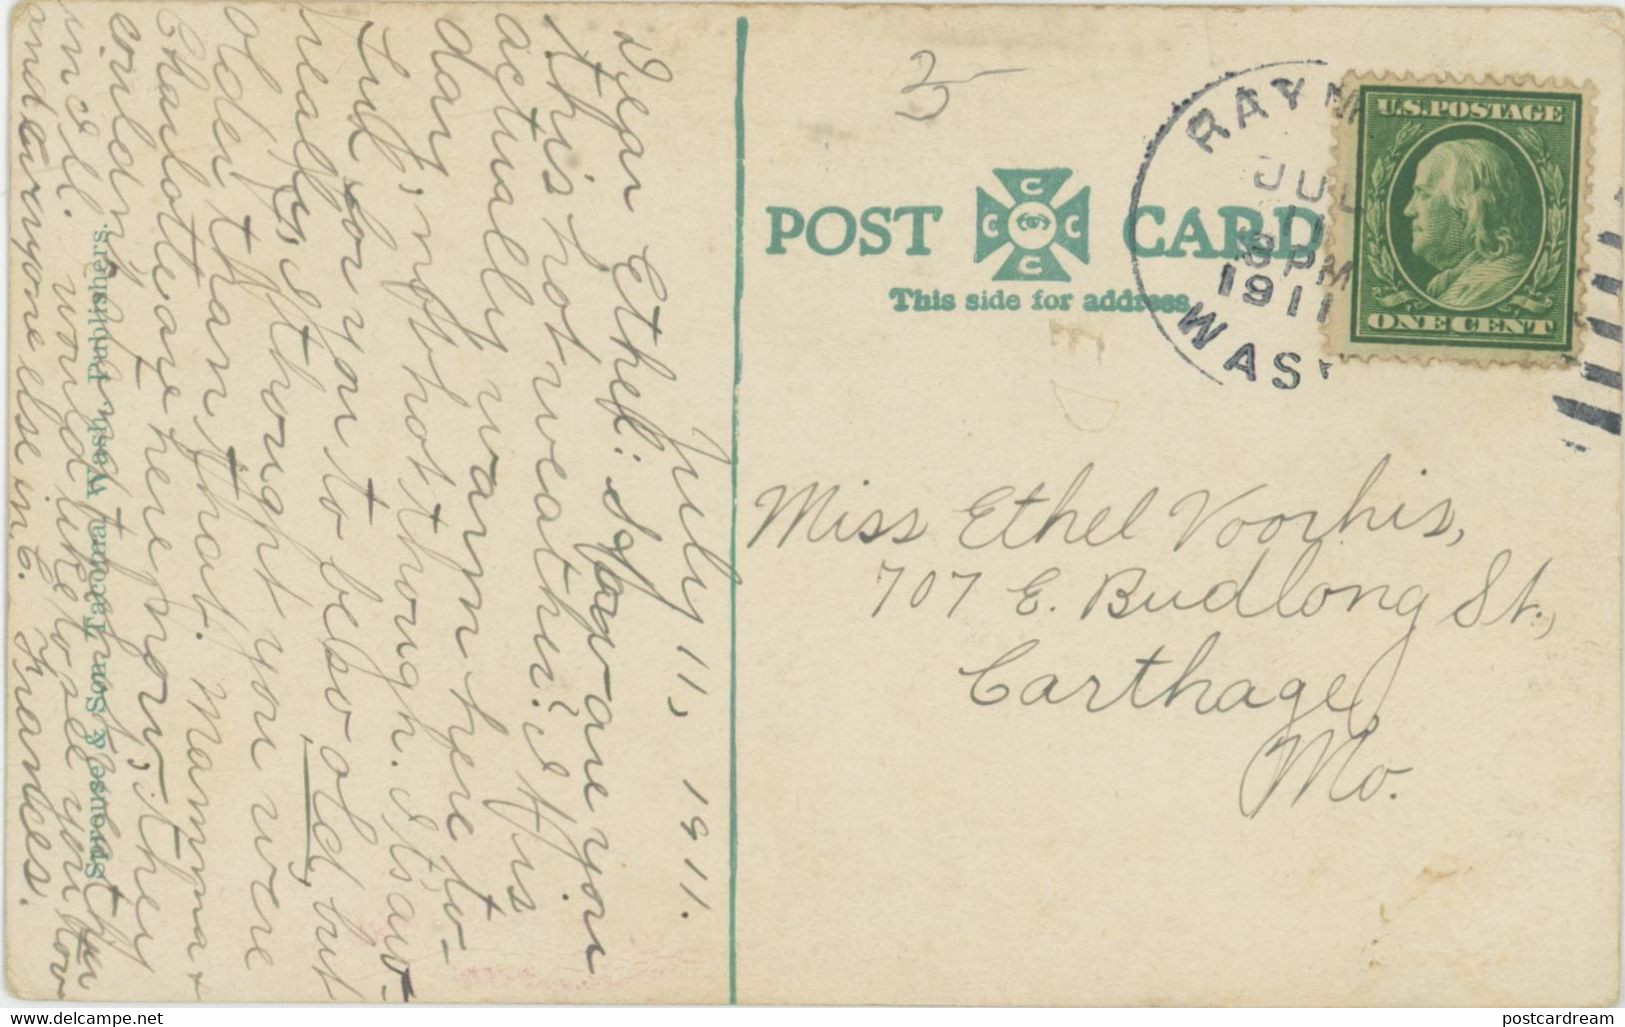 July 11, 1911.
Dear Ethel: How are you
this hot weather? It is
actually warm here to-
day, not hot though. It's aw-
ful for you to be so old, but
really, I thought you were
older than that. Mamma &
Charlotte are here now, they
couldn't
in Ill. would like to see you now
and everyone else in C. Frances.
Sprouse & Son, Tacoma, Wash., Publishers.
POST CARD
C C C C
This side for address
RAYM
JUL
11
8 PM
1911
WASH
U.S. POSTAGE
ONE CENT
Miss Ethel Voorhis,
707 E. Budlong St.,
Carthage,
Mo.
delcampe.net
postcardream